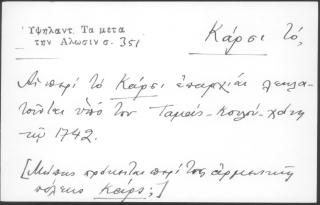 Ὑψηλαντ. Τα μετα
την Αλωσιν σ. 351
Κάρσι τό,
Αἱ περί τό Κάρσι ἐπαρχίαι λεηλα-
τοῦνται ὑπό του Ταμάς-Κουλού-χάνη
τῷ 1742.
[Μήπως πρόκειται περί της ἀρμενικῆς
πόλεως Κάρς;]